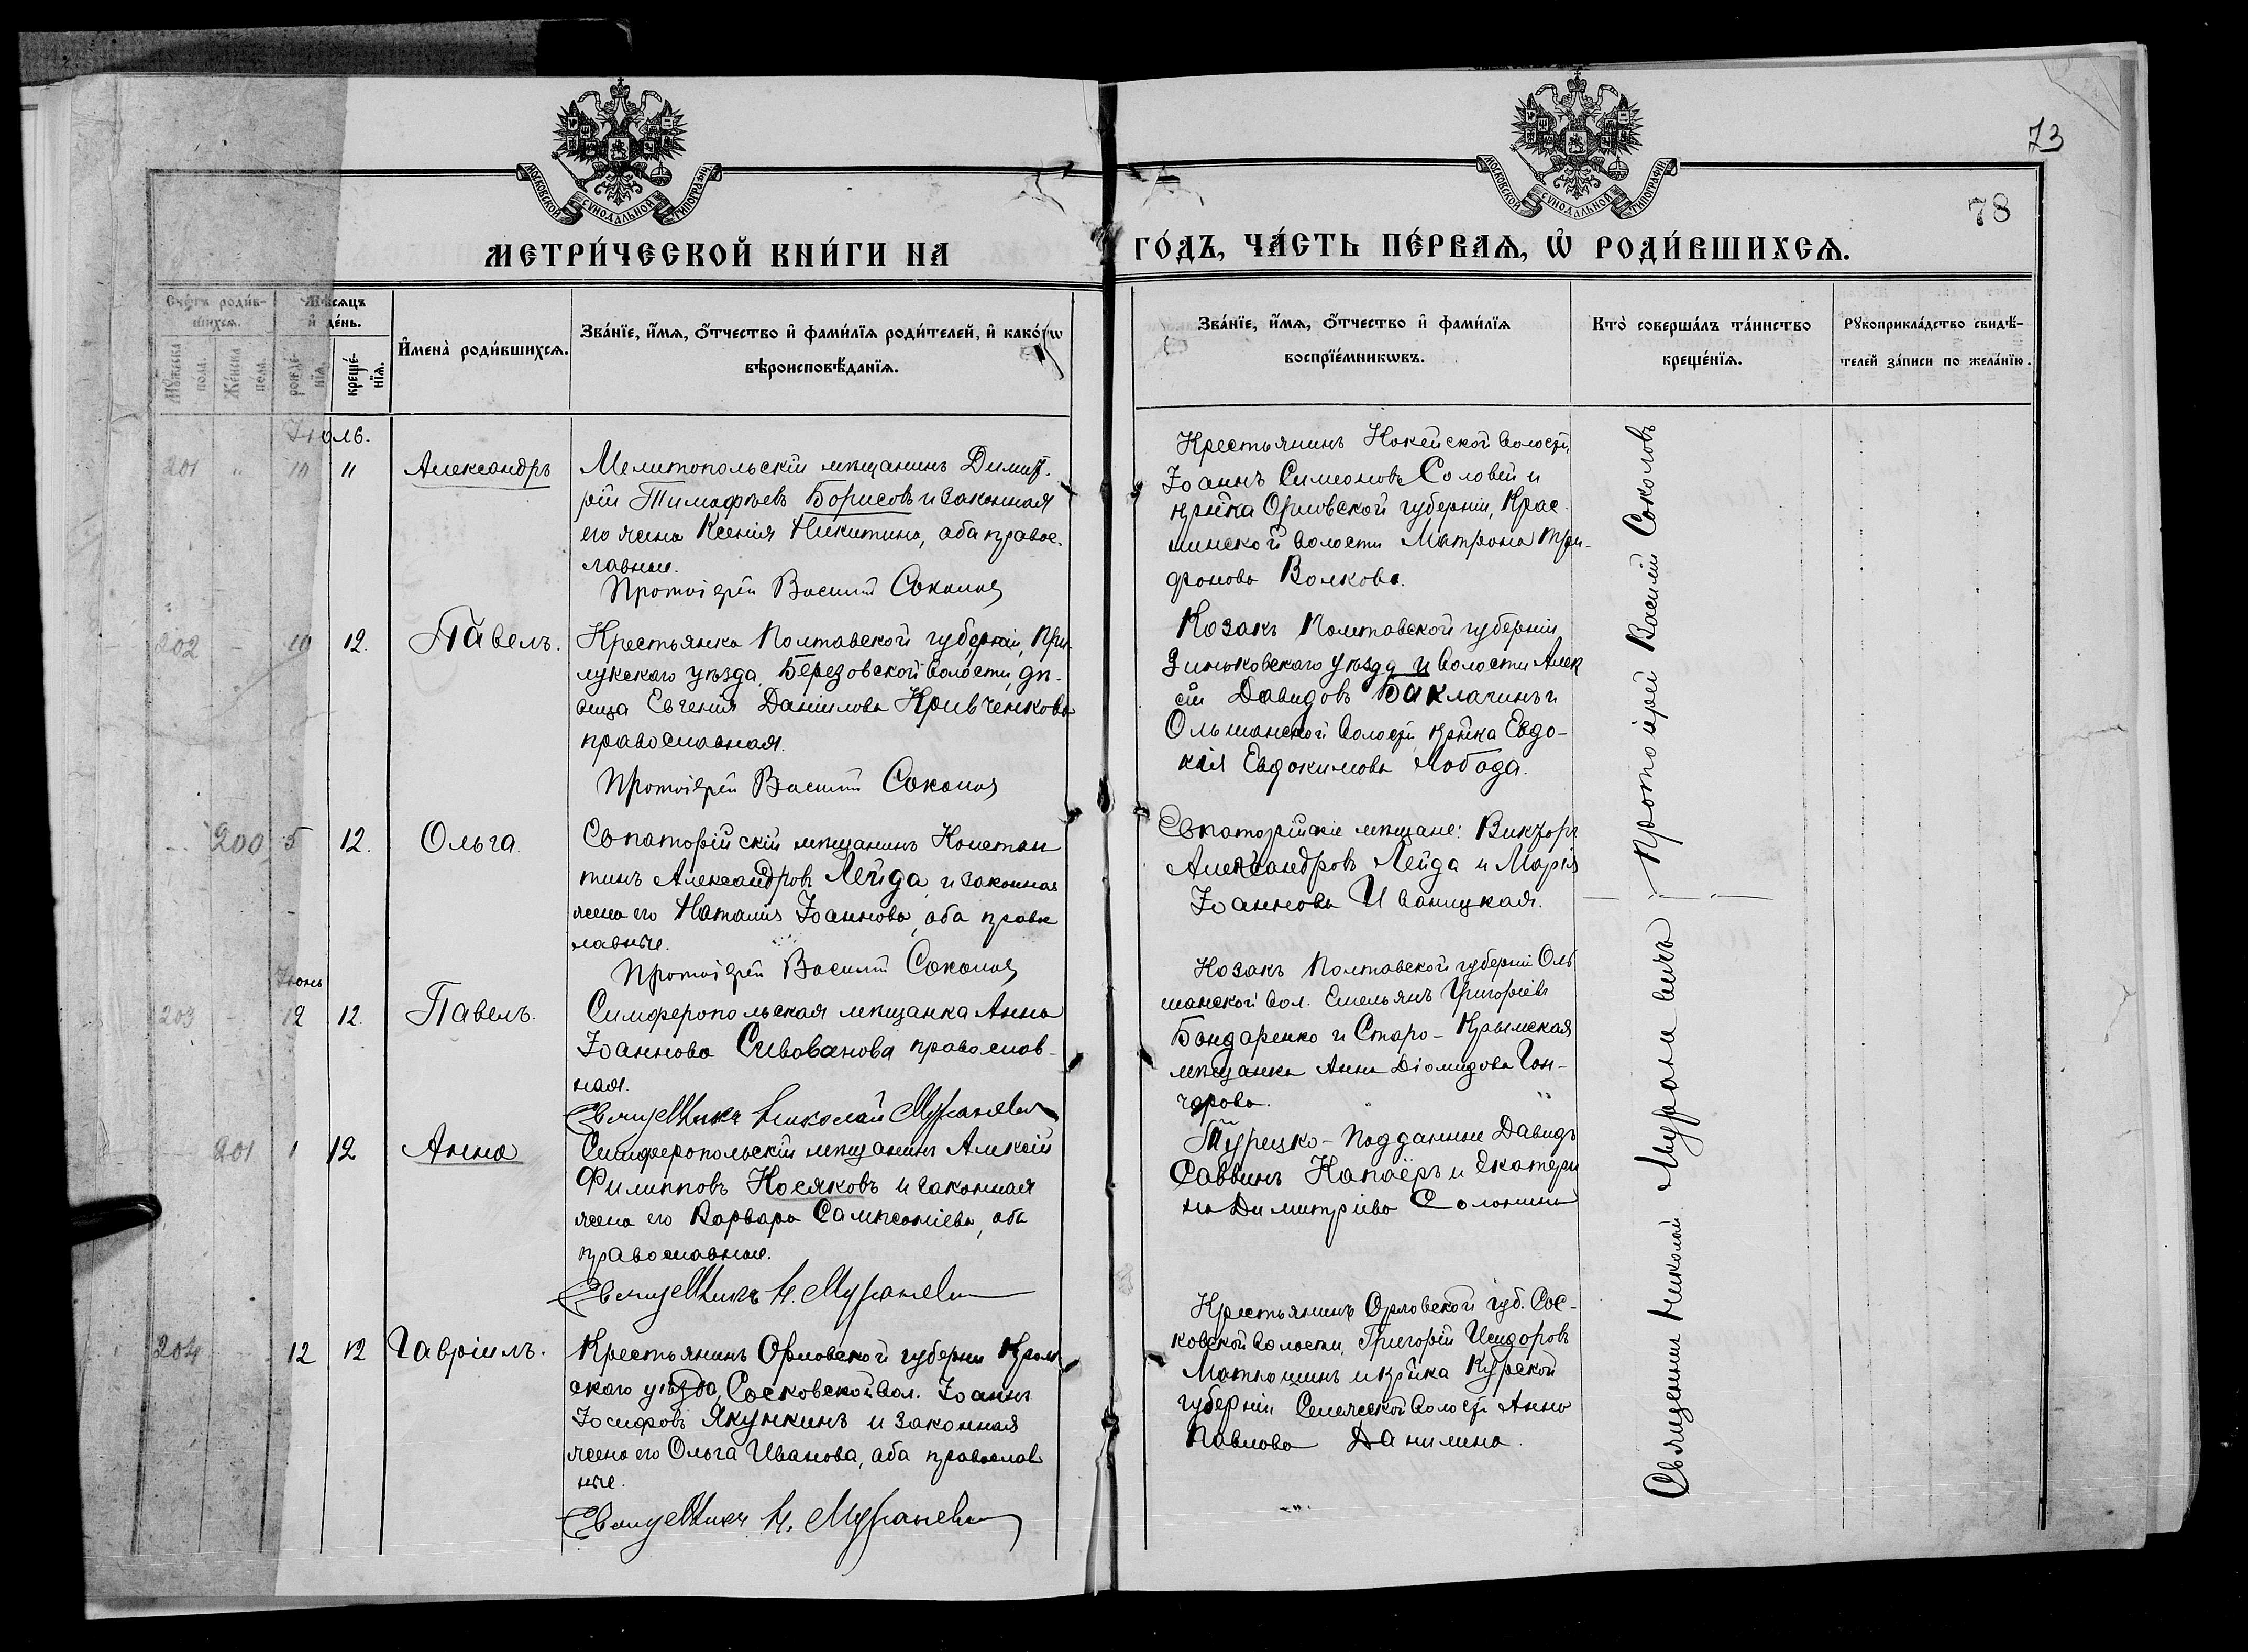 73
78
МОСКОВСКОЙ СѴНОДАЛЬНОЙ ТИПОГРАФІИ
МОСКОВСКОЙ СѴНОДАЛЬНОЙ ТИПОГРАФІИ
МЕТРИ́ЧЕСКОЙ КНИ́ГИ НА
ГО́ДЪ, ЧА́СТЬ ПЕ́РВАѦ, Ѡ҆ РОДИ́ВШИХСѦ.
Сче́тъ роди́в-
шихсѧ.
Мѣ́сѧцъ
и҆ де́нь.
Мꙋ́жеска
по́ла.
Же́нска
по́ла.
рожде́-
нїѧ.
креще́-
нїѧ.
И҆мена̀ роди́вшихсѧ.
Зва́нїе, и҆́мѧ, ѻ҆́тчество и҆ фами́лїѧ роди́телей, и҆ како́гѡ
вѣроисповѣ́данїѧ.
Зва́нїе, и҆́мѧ, ѻ҆́тчество и҆ фами́лїѧ
воспрїе́мникѡвъ.
Кто̀ соверша́лъ та́инство
креще́нїѧ.
Рꙋкоприкла́дство свидѣ́-
телей за́писи по жела́нїю.
Іюль.
201 " 10 11 Александръ
Мелитопольскій мѣщанинъ Димит-
рій Тимофѣевъ Борисовъ и законная
его жена Ксенія Никитина, оба правос-
лавные.
Протоіерей Василій Соколов
Крестьянинъ Кокейской волости,
Іоаннъ Симеоновъ Соловей и
кр̃нка Орловской губерніи, Крас-
нинской волости Матрона Три-
фонова Волкова.
202 - 10 12. Павелъ.
Крестьянка Полтавской губерніи, При-
лукскаго уѣзда, Березовской волости, дѣ-
вица Евгенія Даніилова Кривченкова
православная.
Протоіерей Василій Соколов
Козакъ Полтавской губерніи
Зиньковскаго уѣзда и волости Алек
сій Давидовъ Баклагинъ и
Ольшанской волости кр̃нка Евдо-
кія Евдокимова Лобода.
- 200 5 12. Ольга.
Евпаторійскій мѣщанинъ Констан
тинъ Александровъ Лейда и законная
жена его Наталія Іоаннова, оба право
лавные.
Протоіерей Василій Соколов
Евпаторійскіе мѣщане: Викторъ
Александровъ Лейда и Марія
Іоаннова Иваницкая.
Іюнь
203 - 12 12. Павелъ.
Симферопольская мѣщанка Анна
Іоаннова Сивованова православ-
ная.
Священникъ Николай Мураневич
Козакъ Полтавской губерніи Оль
шанской вол. Емельянъ Григоріевъ
Бондаренко и Старо-Крымская
мѣщанка Анна Діомидова Гон-
чарова.
201 1 12 Анна
Симферопольскій мѣщанинъ Алексій
Филипповъ Носяковъ и законная
жена его Варвара Сампсоніева, оба
православные.
Священникъ Н. Мураневич
Турецко-подданные Давидъ
Саввинъ Капаёръ и Екатери
на Димитріева Солонина
204 12 12 Гавріилъ.
Крестьянинъ Орловской губерніи Кром
скаго уѣзда, Сосковской вол. Іоаннъ
Іосифовъ Якункинъ и законная
жена его Ольга Иванова, оба православ
ные.
Священникъ Н. Мураневич
Крестьянинъ Орловской губ. Сос-
ковской волости, Григорій Исидоровъ
Матюшинъ и кр̃нка Курской
губерніи волости Анна
Павлова Данилина.
Протоіерей Василій Соколовъ
Священникъ Николай Мураневичъ